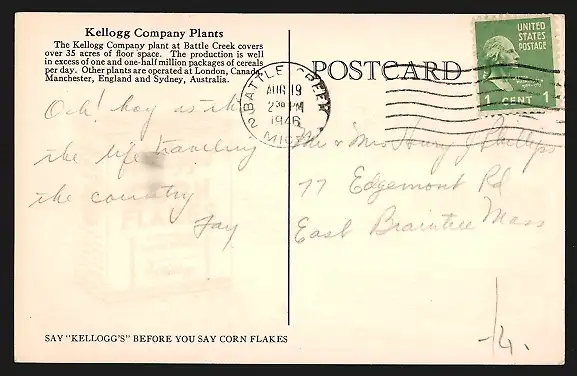 Kellogg Company Plants
The Kellogg Company plant at Battle Creek covers
over 35 acres of floor space. The production is well
in excess of one and one-half million packages of cereals
per day. Other plants are operated at London, Canada,
Manchester, England and Sydney, Australia.
POSTCARD
UNITED
STATES
POSTAGE
1 CENT 1
BATTLE CREEK
AUG 19
2 30 PM
1946
MICH
2
Ooh! boy is this
the life traveling
the country
Fay
Mr & Mrs Henry J Phillips
77 Edgemont Rd
East Braintree Mass
SAY "KELLOGG'S" BEFORE YOU SAY CORN FLAKES